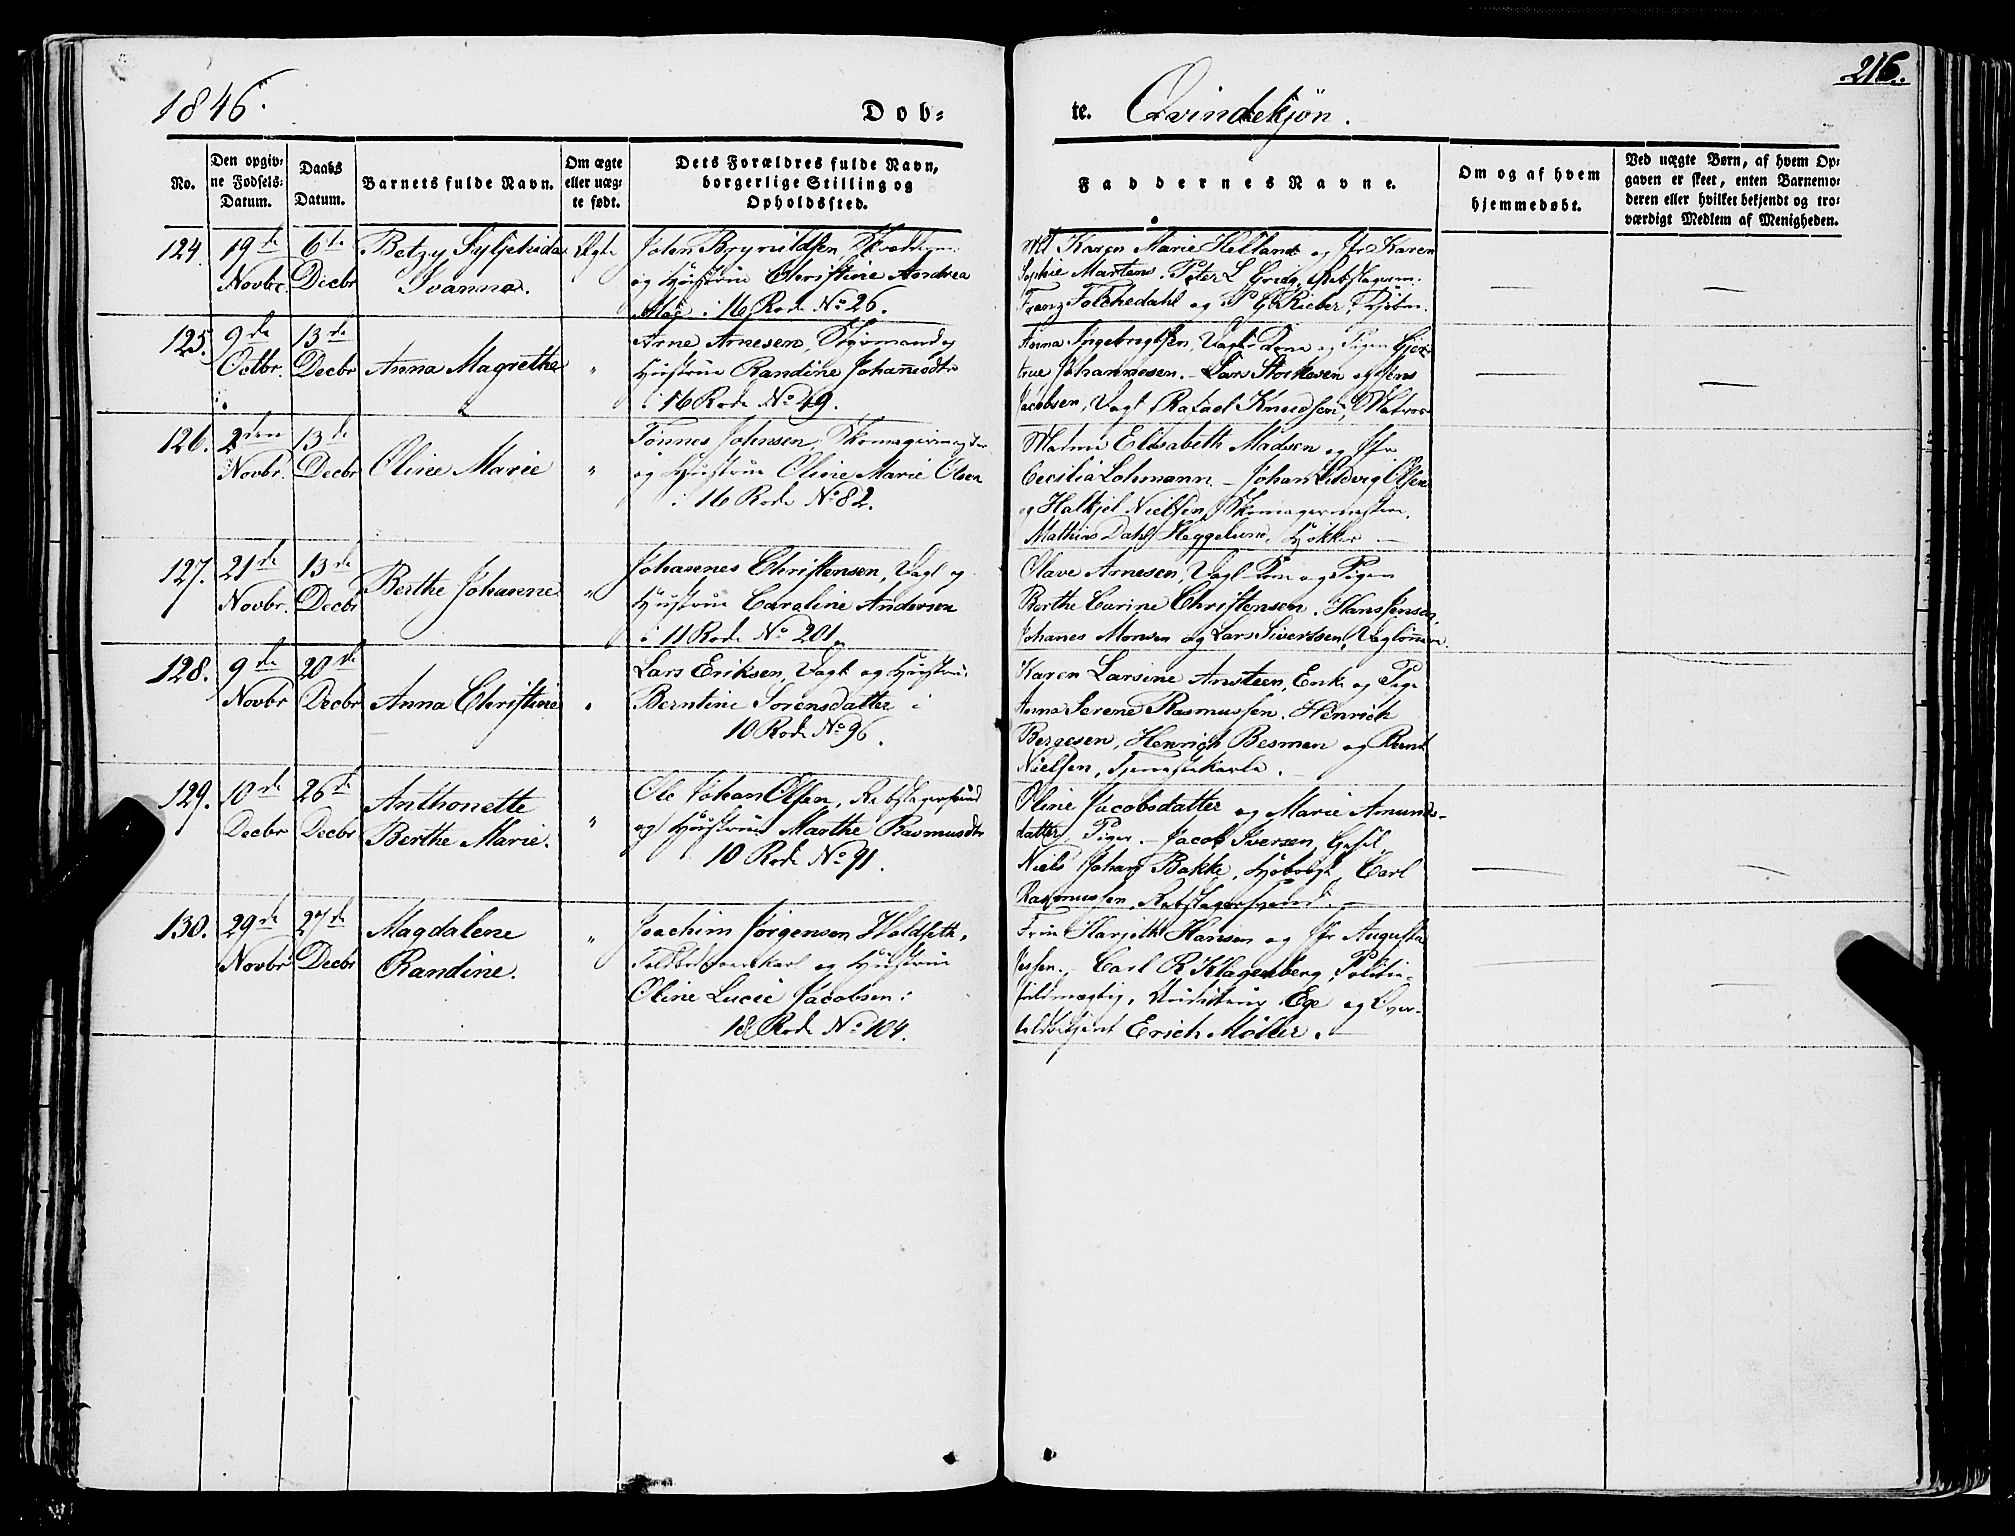 1846.
Dob-
te. Qvindekjön.
216.
No.
Den opgiv-
ne Fødsels-
Datum.
Daabs
Datum.
Barnets fulde Navn.
Om ægte
eller uæg-
te født.
Dets Forældres fulde Navn,
borgerlige Stilling og
Opholdssted.
Faddernes Navne.
Om og af hvem
hjemmedøbt.
Ved uægte Børn, af hvem Op-
gaven er skeet, enten Barnemo-
deren eller hvilket bekjendt og tro-
værdigt Medlem af Menigheden.
124. 19de Novbr. 6te Decbr
Betzy
Svanna.
Ægte
John Brynildsen,
og Hustrue Christine Andrea
i 16 Rode No 26.
Karen Marie Helland og Jfr Karen
Sophie Martens. Peter L Grieg,
Franz og P G Rieber,
125. 9de Octbr. 13de Decbr
Anna Magrethe
"
Arne Arnesen, Styrmand og
Hustrue Randine Johannesdtr
i 16 Rode No 49.
Anna Ingebrigtsen, Vagt. Kone og Pigen Gjer-
true Johannesen. Lars Storksen og Jens
Jacobsen, Vagt Rafael Knudsen, Matros
126. 2den Novbr. 13de Decbr
Oline Marie
"
Tönnes Johnsen, Skomagermester
og Hustrue Oline Marie Olsen
i 16 Rode No 82.
Madme Elisabeth Madsen og Jfr
Cecilia Lohmann – Johan Ludvig Olsen
og Halkjel Nielsen, Skomagermestere.
Mathias Dahl Heggelund, Høkker –
127. 21de Novbr. 13de Decbr
Berthe Johanne
"
Johannes Christensen, Vagt og
Hustrue Caroline Andersen
i 11 Rode No 201
Olave Arnesen, Vagt. Kone og Pigen
Berthe Carine Christensen. Hans Jensen,
Johanes Monsen og Lars Sivertsen,
128. 9de Novbr 20de Decbr
Anna Christine
"
Lars Eriksen, Vagt og Hustrue
Berntine Sørensdatter i
10 Rode No 96.
Karen Larsine Ansteen, Enke og Pige
Anna Serene Rasmussen. Henrich
Bergesen, Henrich Besmen og Bernt
Nielsen, Tjenestekarle. –
129. 10de Decbr 26de Decbr
Anthonette
Berthe Marie.
"
Ole Johan Olsen, Rebslagersvend
og Hustrue Marthe Rasmusdtr
10 Rode No 91.
Oline Jacobsdatter og Marie Amunds-
datter, Piger – Jacob Iversen,
Niels Johan Bakke, Carl
Rasmussen, Rebslagersvend. –
130. 29de Novbr 27de Decbr
Magdalene
Randine.
"
Joachim Jörgensen Holdseth,
og Hustrue
Oline Lucie Jacobsen i
18 Rode No 104.
Frue Hansen og Jfr Augusta
Jessen. Carl R Klagenberg, Politie-
fuldmægtig, Ege og Over-
Erich Møller. –